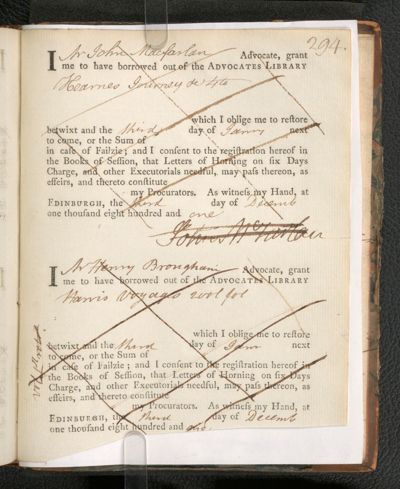 294.
I Mr John Macfarlan Advocate, grant
me to have borrowed out of the ADVOCATES LIBRARY
Hearnes Journey &c 4to
which I oblige me to reſtore
betwixt and the third day of Janry next
to come, or the Sum of
in caſe of Failzie; and I conſent to the regiſtration hereof in
the Books of Seſſion, that Letters of Horning on ſix Days
Charge, and other Executorials needful, may paſs thereon, as
effeirs, and thereto conſtitute
my Procurators. As witneſs my Hand, at
EDINBURGH, the third day of Decemb
one thouſand eight hundred and one
John McFarlan
I Mr Henry Brougham Advocate, grant
me to have borrowed out of the ADVOCATES LIBRARY
Harris Voyages 2vol fol
which I oblige me to reſtore
betwixt and the third day of Janr next
to come, or the Sum of
in caſe of Failzie; and I conſent to the regiſtration hereof in
the Books of Seſſion, that Letters of Horning on ſix Days
Charge, and other Executorials needful, may paſs thereon, as
effeirs, and thereto conſtitute
my Procurators. As witneſs my Hand, at
EDINBURGH, the third day of Decemb
one thouſand eight hundred and one.